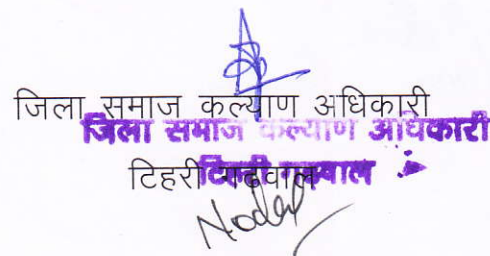 जिला समाज कल्याण अधिकारी
जिला समाज कल्याण अधिकारी
टिहरी गढ़वाल
टिहरी गढ़वाल
Nodal